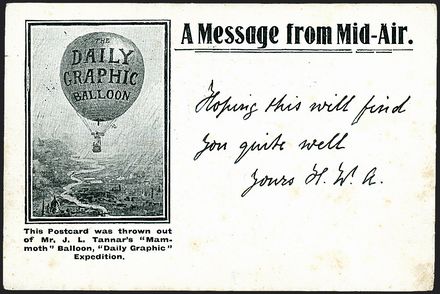 THE
DAILY
GRAPHIC
BALLOON
This Postcard was thrown out
of Mr. J. L. Tannar's "Mam-
moth" Balloon, "Daily Graphic"
Expedition.
A Message from Mid-Air.
Hoping this will find
you quite well
Yours H. W. A.